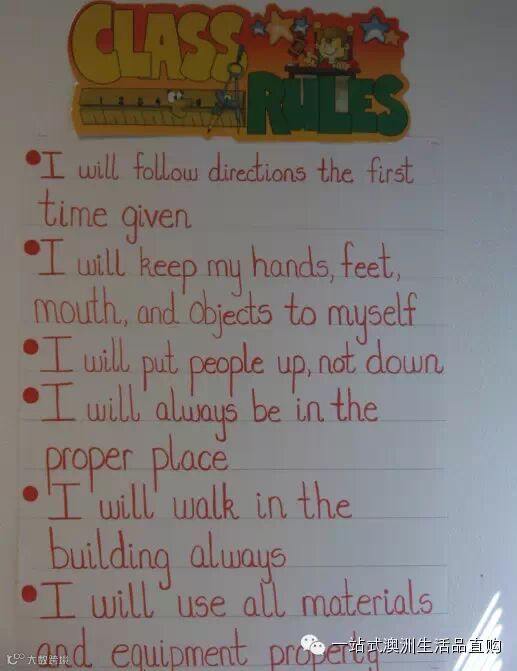 CLASS
RULES
• I will follow directions the first
time given
• I will keep my hands, feet,
mouth, and objects to myself
• I will put people up, not down
• I will always be in the
proper place
• I will walk in the
building always
• I will use all materials
and equipment property
一站式澳洲生活品直购
大数跨境